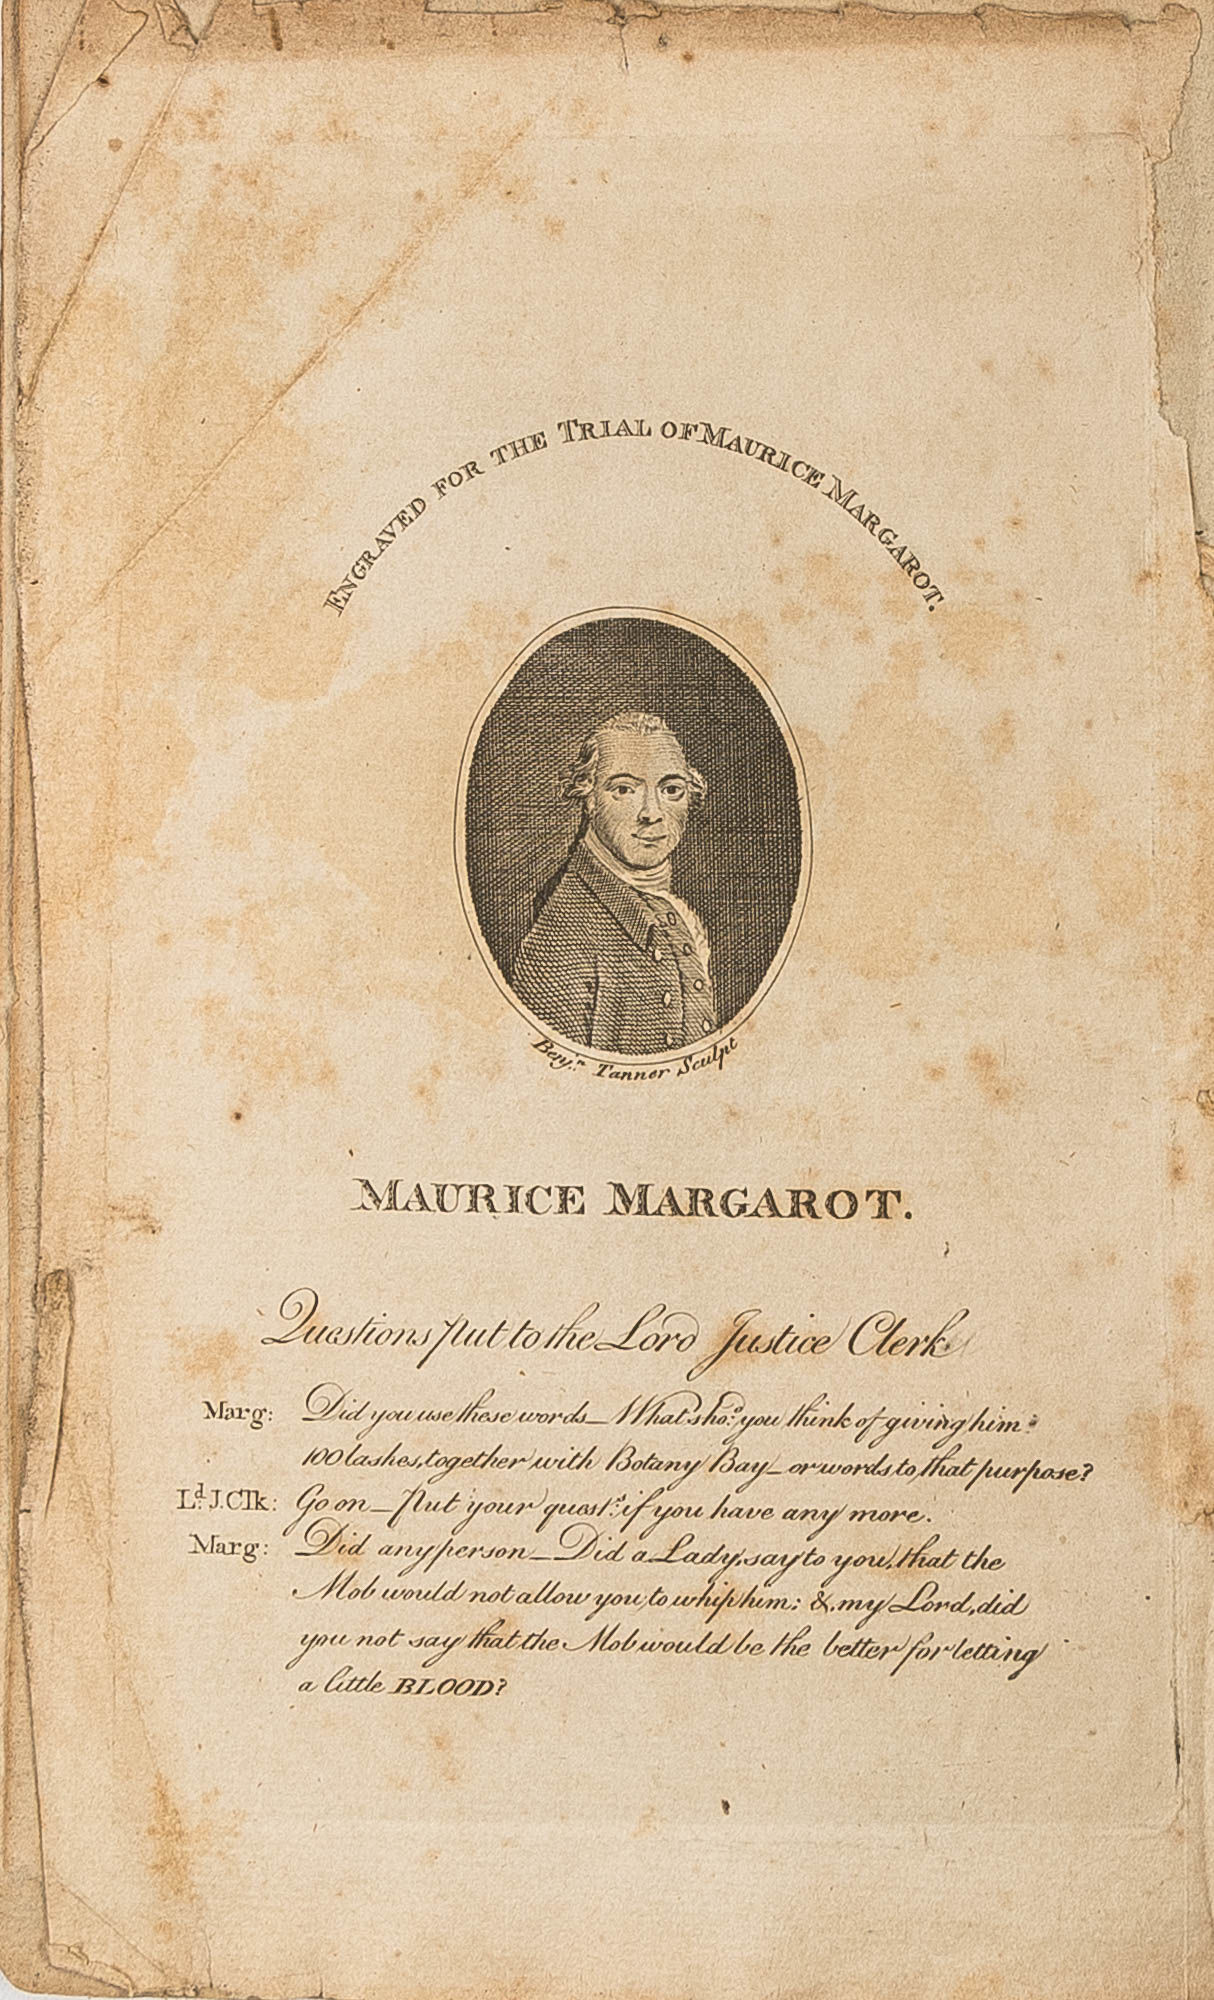 ENGRAVED FOR THE TRIAL OF MAURICE MARGAROT.
Benjn. Tanner Sculpt
MAURICE MARGAROT.
Questions put to the Lord Justice Clerk.
Marg: Did you use these words_What sho.d you think of giving him
100 lashes, together with Botany Bay_or words to that purpose?
Ld. J. Clk: Go on_Put your quest.s if you have any more.
Marg: Did any person_Did a Lady, say to you, that the
Mob would not allow you to whip him: &, my Lord, did
you not say that the Mob would be the better for letting
a little BLOOD?